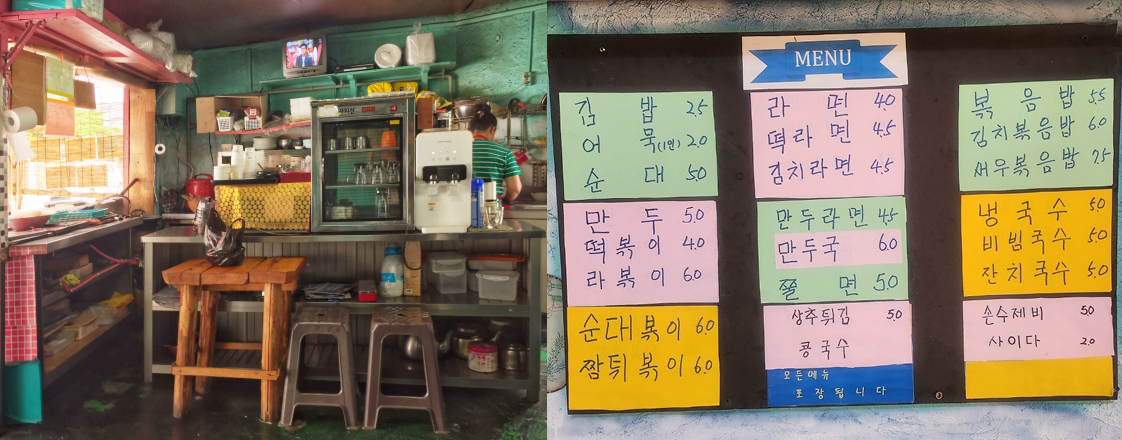 MENU
김 밥 2.5
어 묵(1인) 2.0
순 대 5.0
만 두 5.0
떡 볶 이 4.0
라 볶 이 6.0
순대볶이 6.0
짬뽀볶이 6.0
라 면 4.0
떡라면 4.5
김치라면 4.5
만두라면 4.5
만두국 6.0
쫄 면 5.0
상추튀김 5.0
콩국수
모든메뉴
포장됩니다
볶음밥 5.5
김치볶음밥 6.0
새우볶음밥 7.5
냉국수 5.0
비빔국수 5.0
잔치국수 5.0
손수제비 5.0
사이다 2.0